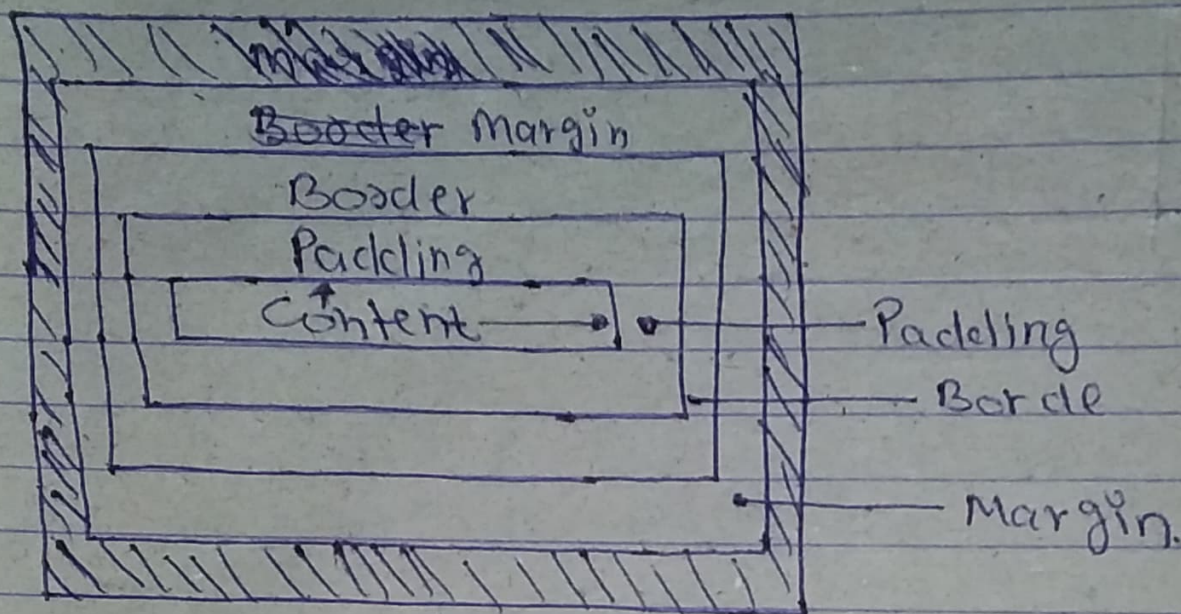 Margin
Booder
Padding
Content
Padding
Borde
Margin.